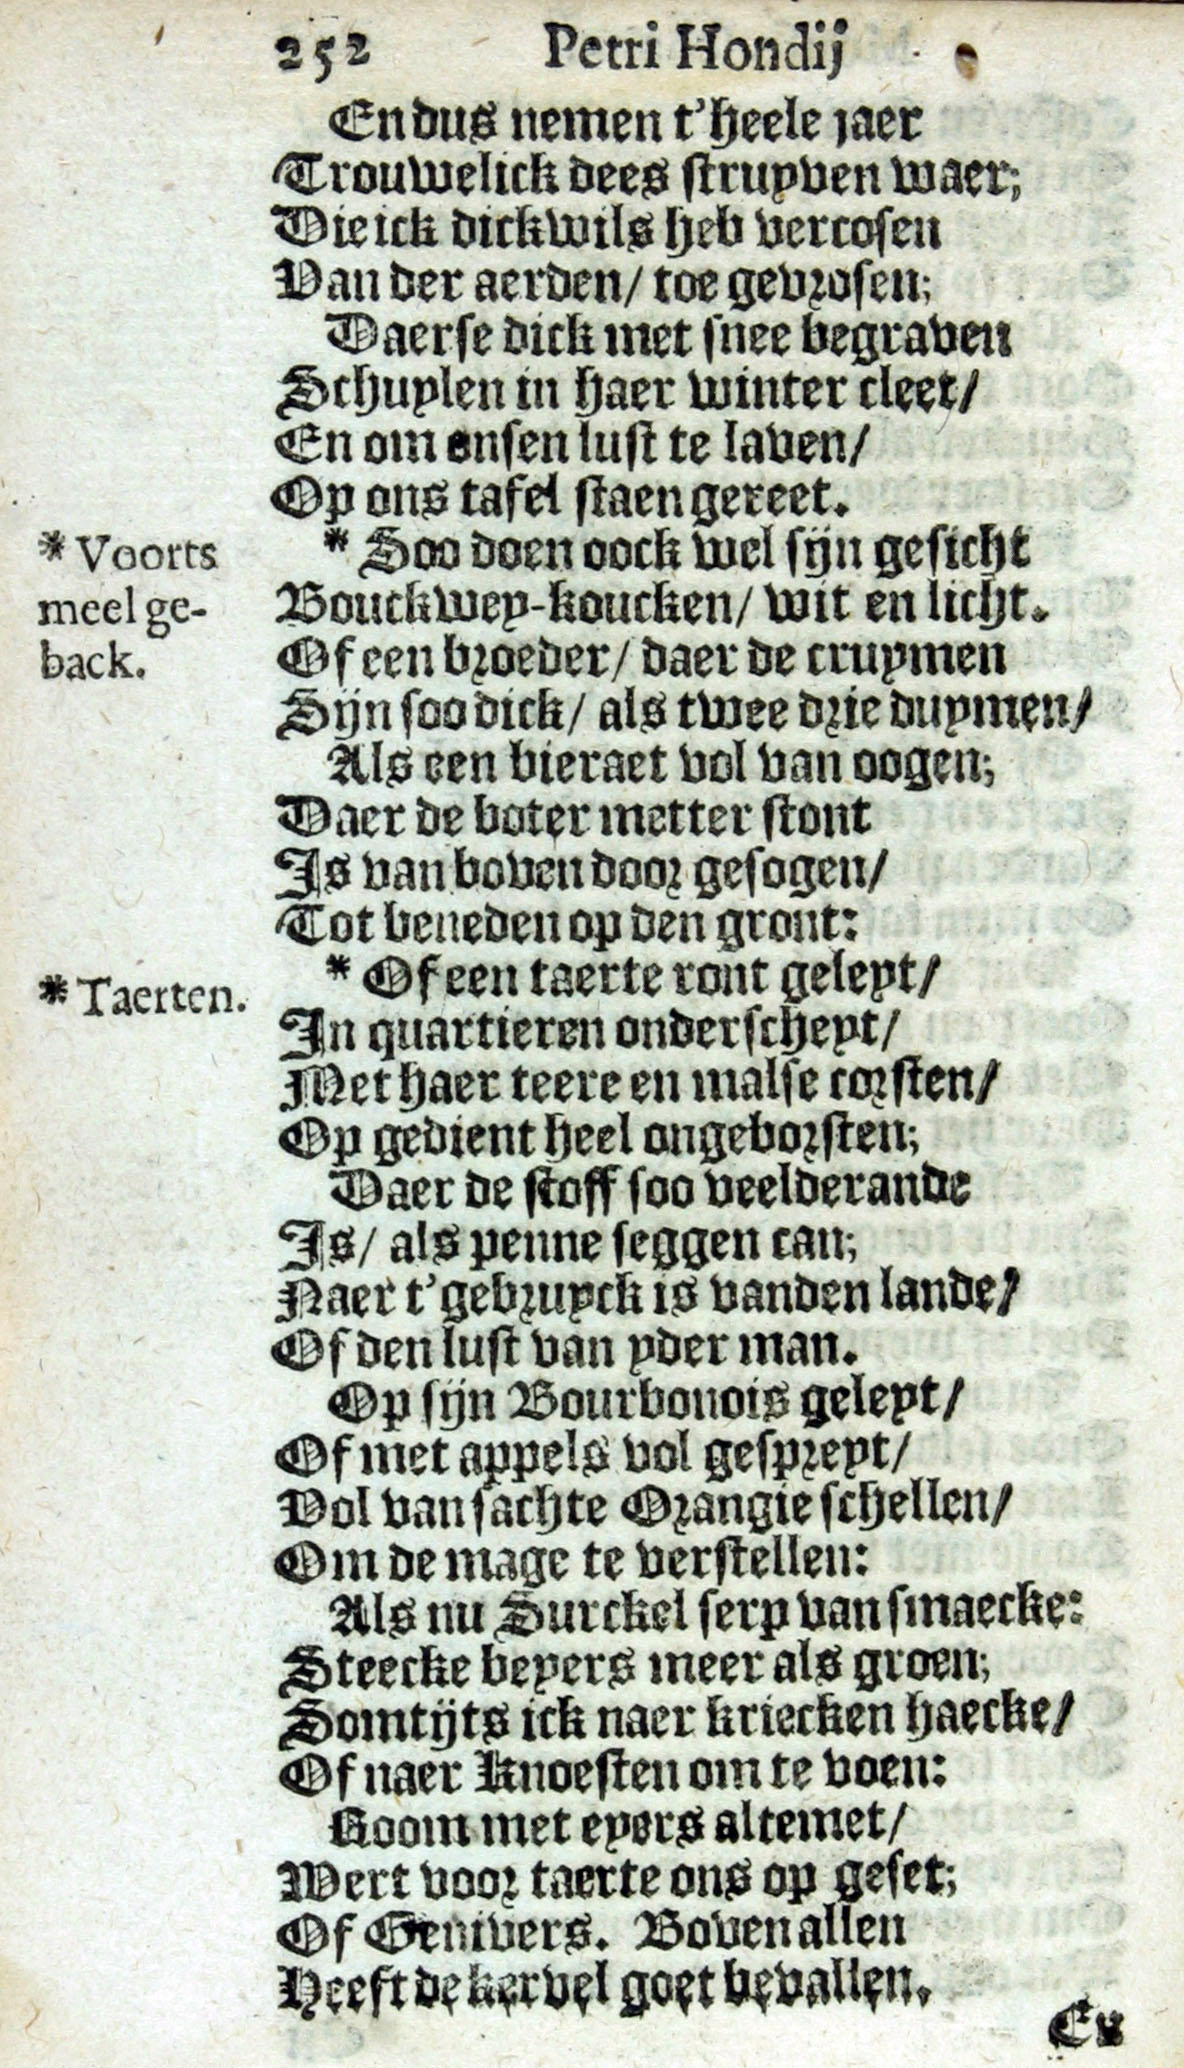 252 Petri Hondij
En dus nemen t'heele jaer
Trouwelick dees struyven waer;
Die ick dickwils heb vercosen
Van der aerden/ toe gevrosen;
Daerse dick met snee begraven
Schuylen in haer winter cleet/
En om onsen lust te laven/
Op ons tafel staen gereet.
* Voorts meel ge-back.
* Soo doen oock wel sijn gesicht
Bouckwey-koucken/ wit en licht.
Of een broeder/ daer de cruymen
Sijn soo dick/ als twee drie duymen/
Als een bieraet vol van oogen;
Daer de boter metter stont
Is van boven door gesogen/
Tot beneden op den gront:
* Taerten.
* Of een taerte ront geleyt/
In quartieren onderscheyt/
Met haer teere en malse corsten/
Op gedient heel ongeborsten;
Daer de stoff soo veelderande
Is/ als penne seggen can;
Naer t'gebruyck is vanden lande/
Of den lust van yder man.
Op sijn Bourbonois geleyt/
Of met appels vol gespreyt/
Vol van sachte Orangie schellen/
Om de mage te verstellen:
Als nu Surckel serp van smaecke:
Steecke beyers meer als groen;
Somtijts ick naer kriecken haecke/
Of naer Knoesten om te voen:
Room met eyers altemet/
Wert voor taerte ons op geset;
Of Genivers. Boven allen
Heeft de kervel goet bevallen.
En